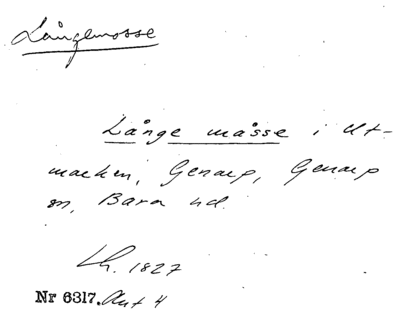 Långemosse
Långe måsse i Ut-
marken, Genarp, Genarp
sn, Bara hd.
Lh. 1827
Nr 6317. Akt 4